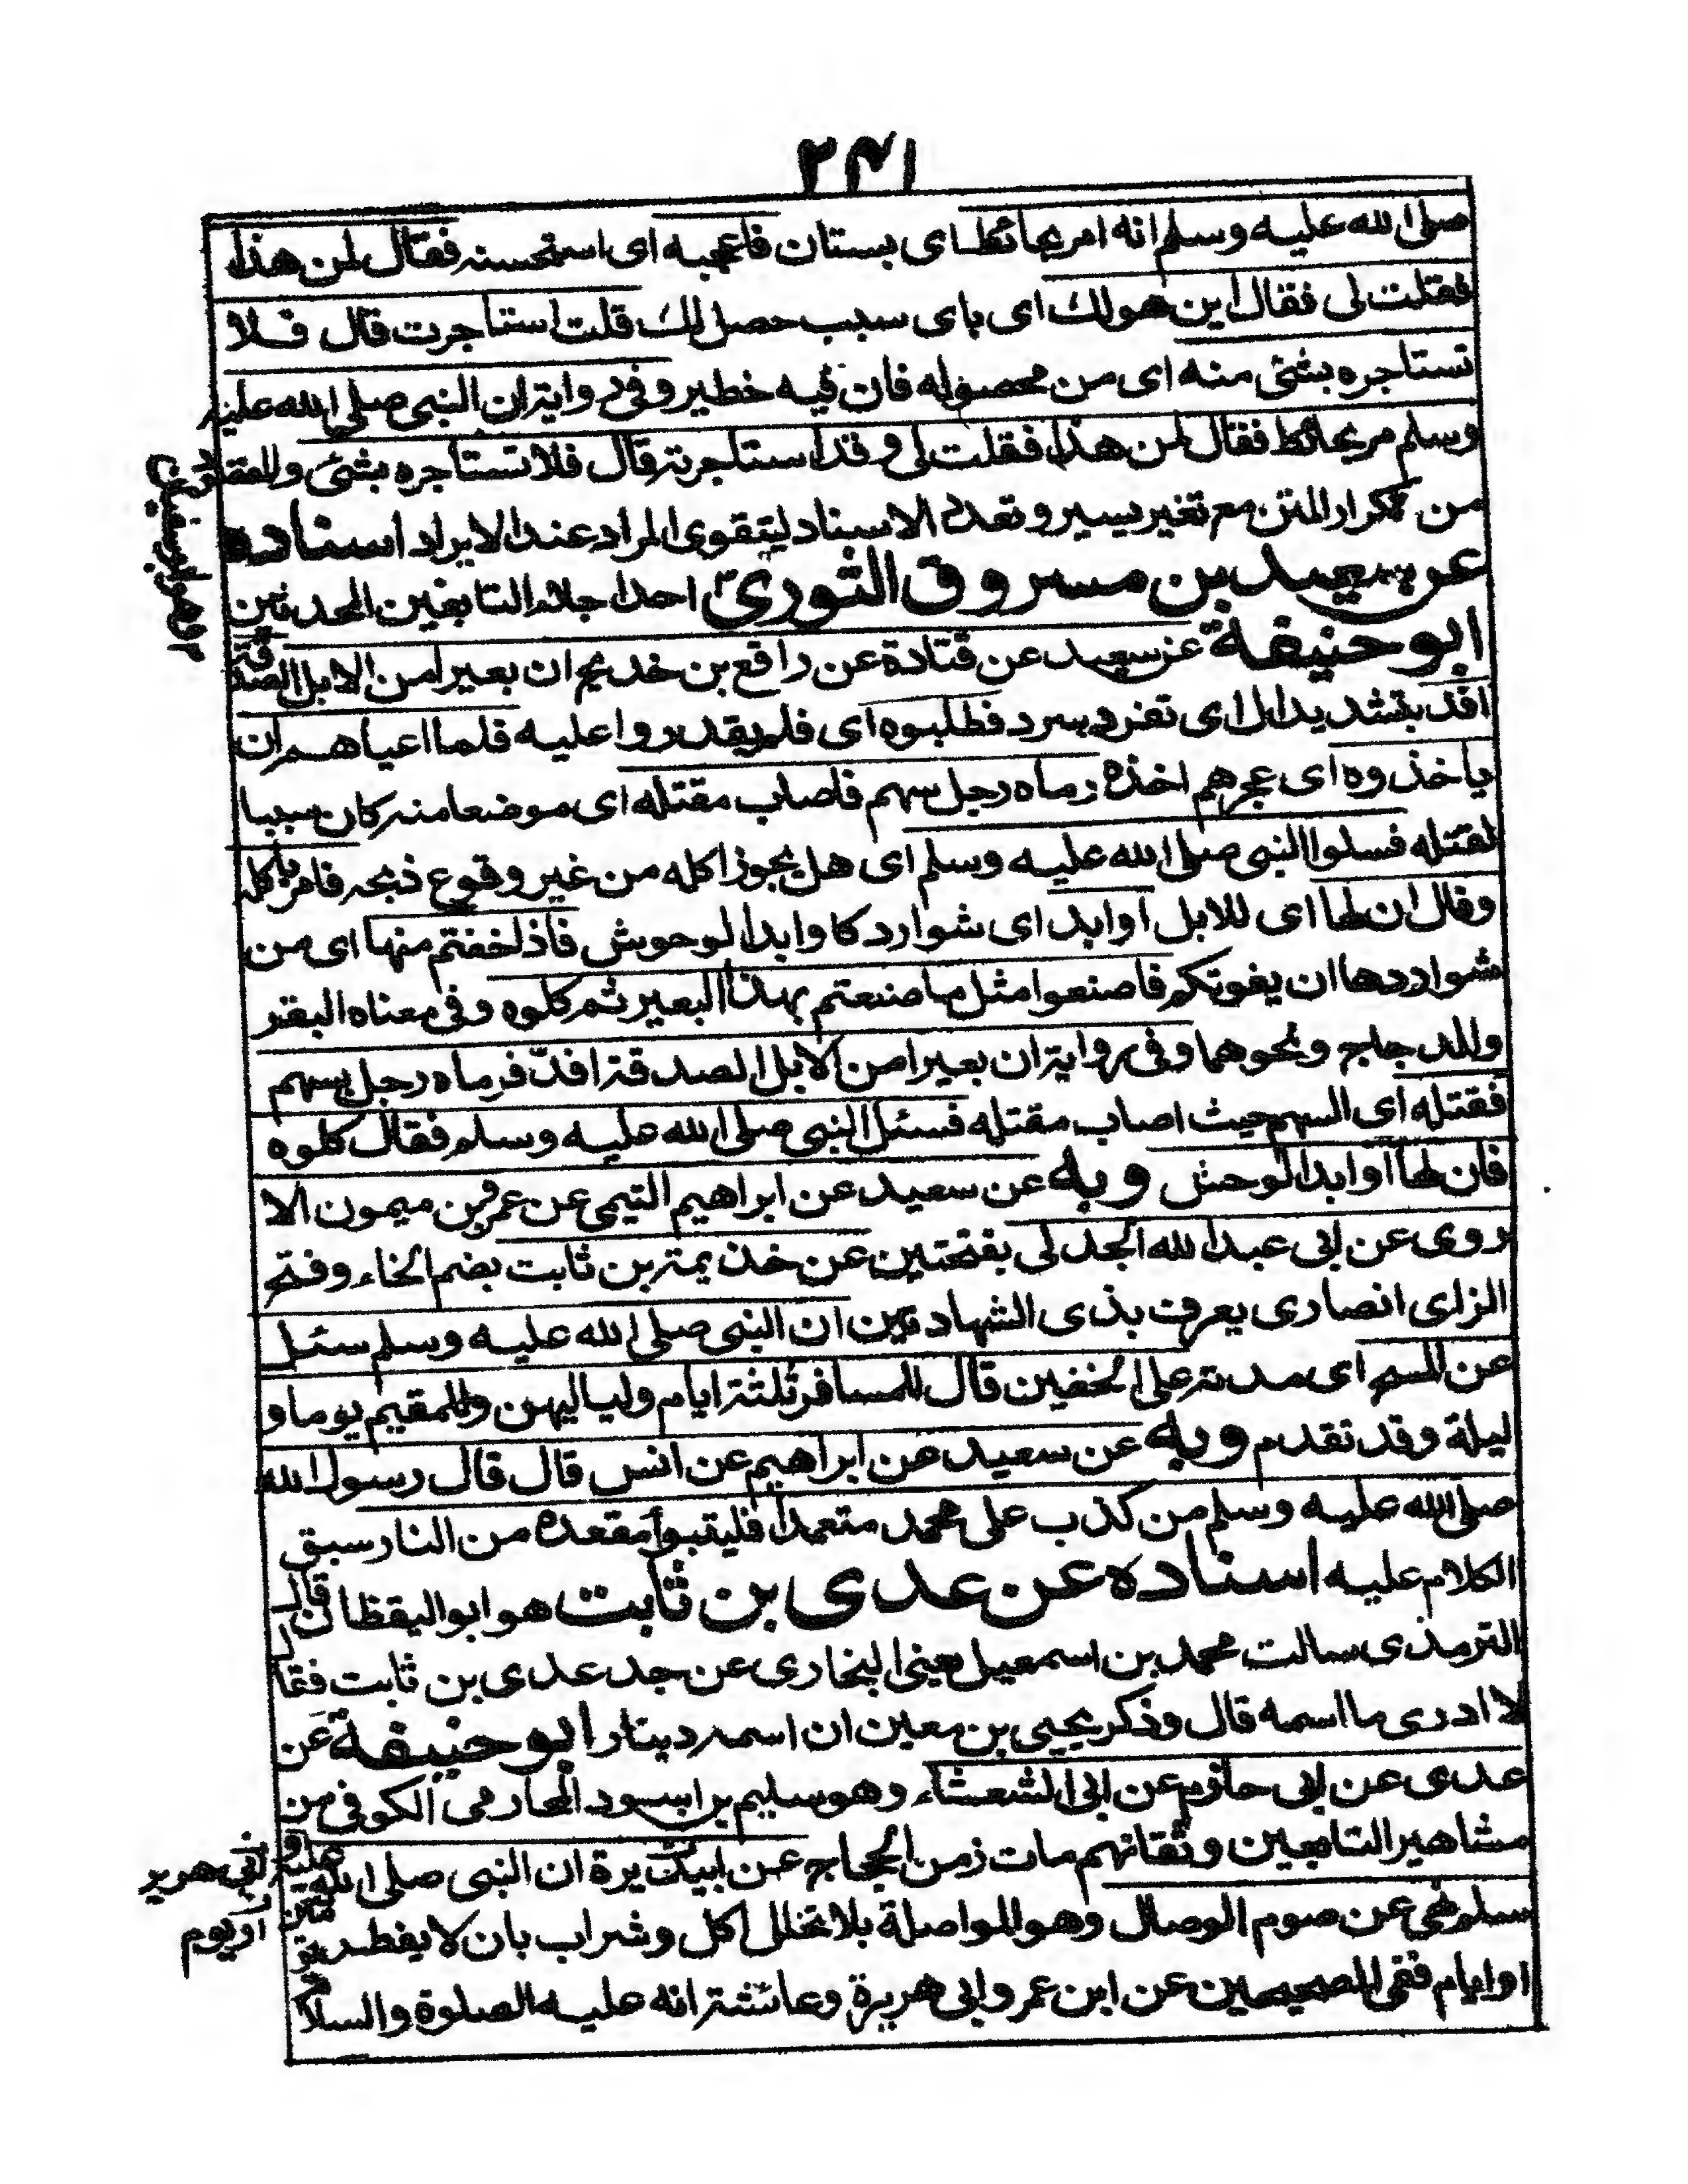 ۲۴۱
صلى الله عليه وسلم انه امر بحائط اى بستان فاعجبه اى استحسنه فقال لمن هذا
فقلت لى فقال اين هو لك اى باى سبب حصل لك قلت استاجرت قال فلا
تستاجره بشئ منه اى من محصوله فان فيه خطير وفى رواية ان النبى صلى الله عليه
وسلم مر بحائط فقال لمن هذا فقلت لى وقد استاجرته قال فلا تستاجره بشئ والمقصود
من تكرار المتن مع تغير يسير وتعدد الاسناد ليتقوى المراد عند الايراد اسناده
عن سعيد بن مسروق الثورى احد اجلاء التابعين المحدثين
ابو حنيفة عن سعيد عن قتادة عن رافع بن خديج ان بعيرا من الابل الصدقة
افد بتشديد الدال اى تفرد سرد فطلبوه اى فلم يقدروا عليه فلما اعياهم ان
ياخذوه اى عجزهم اخذه رماه رجل سهم فاصاب مقتله اى موضعا منه كان سببا
لقتله فسلوا النبى صلى الله عليه وسلم اى هل يجوز اكله من غير وقوع ذبحه فامر باكله
وقال ان لها اى للابل اوابد اى شوارد كاوابد الوحوش فاذا خفتم منها اى من
شواردها ان يفوتكم فاصنعوا مثل ما صنعتم بهذا البعير ثم كلوه وفى معناه البقر
والدجاج ونحوهما وفى رواية ان بعيرا من الابل الصدقة افدّ فرماه رجل بسهم
فقتله اى السهم حيث اصاب مقتله فسئل النبى صلى الله عليه وسلم فقال كلوه
فان لها اوابد الوحش وبه عن سعيد عن ابراهيم التيمى عن عمرو بن ميمون الا
روى عن ابى عبد الله الجدلى بفتحتين عن خذيمة بن ثابت بضم الخاء وفتح
الزاى انصارى يعرف بذى الشهادتين ان النبى صلى الله عليه وسلم سئل
عن المسح اى مدته على الخفين قال للمسافر ثلثة ايام ولياليهن وللمقيم يوما و
ليلة وقد تقدم وبه عن سعيد عن ابراهيم عن انس قال قال رسول الله
صلى الله عليه وسلم من كذب على محمد متعمدا فليتبوأ مقعده من النار سبق
الكلام عليه اسناده عن عدى بن ثابت هو ابو اليقظان قال
الترمذى سالت محمد بن اسمعيل يعنى البخارى عن جد عدى بن ثابت فقال
لا ادرى ما اسمه قال وذكر يحيى بن معين ان اسمه دينار ابو حنيفة عن
عدى عن ابى حازم عن ابى الشعشاء وهو سليم بر اسود المحارمى الكوفى من
مشاهير التابعين وثقاتهم مات زمن الحجاج عن ابى هريرة ان النبى صلى الله عليه و
سلم نهى عن صوم الوصال وهو المواصلة بلا تخلل اكل وشراب بان لا يفطر يومين
او ايام ففى الصحيحين عن ابن عمر وابى هريرة وعائشة انه عليه الصلوة والسلام
ابى هرير
او يوم